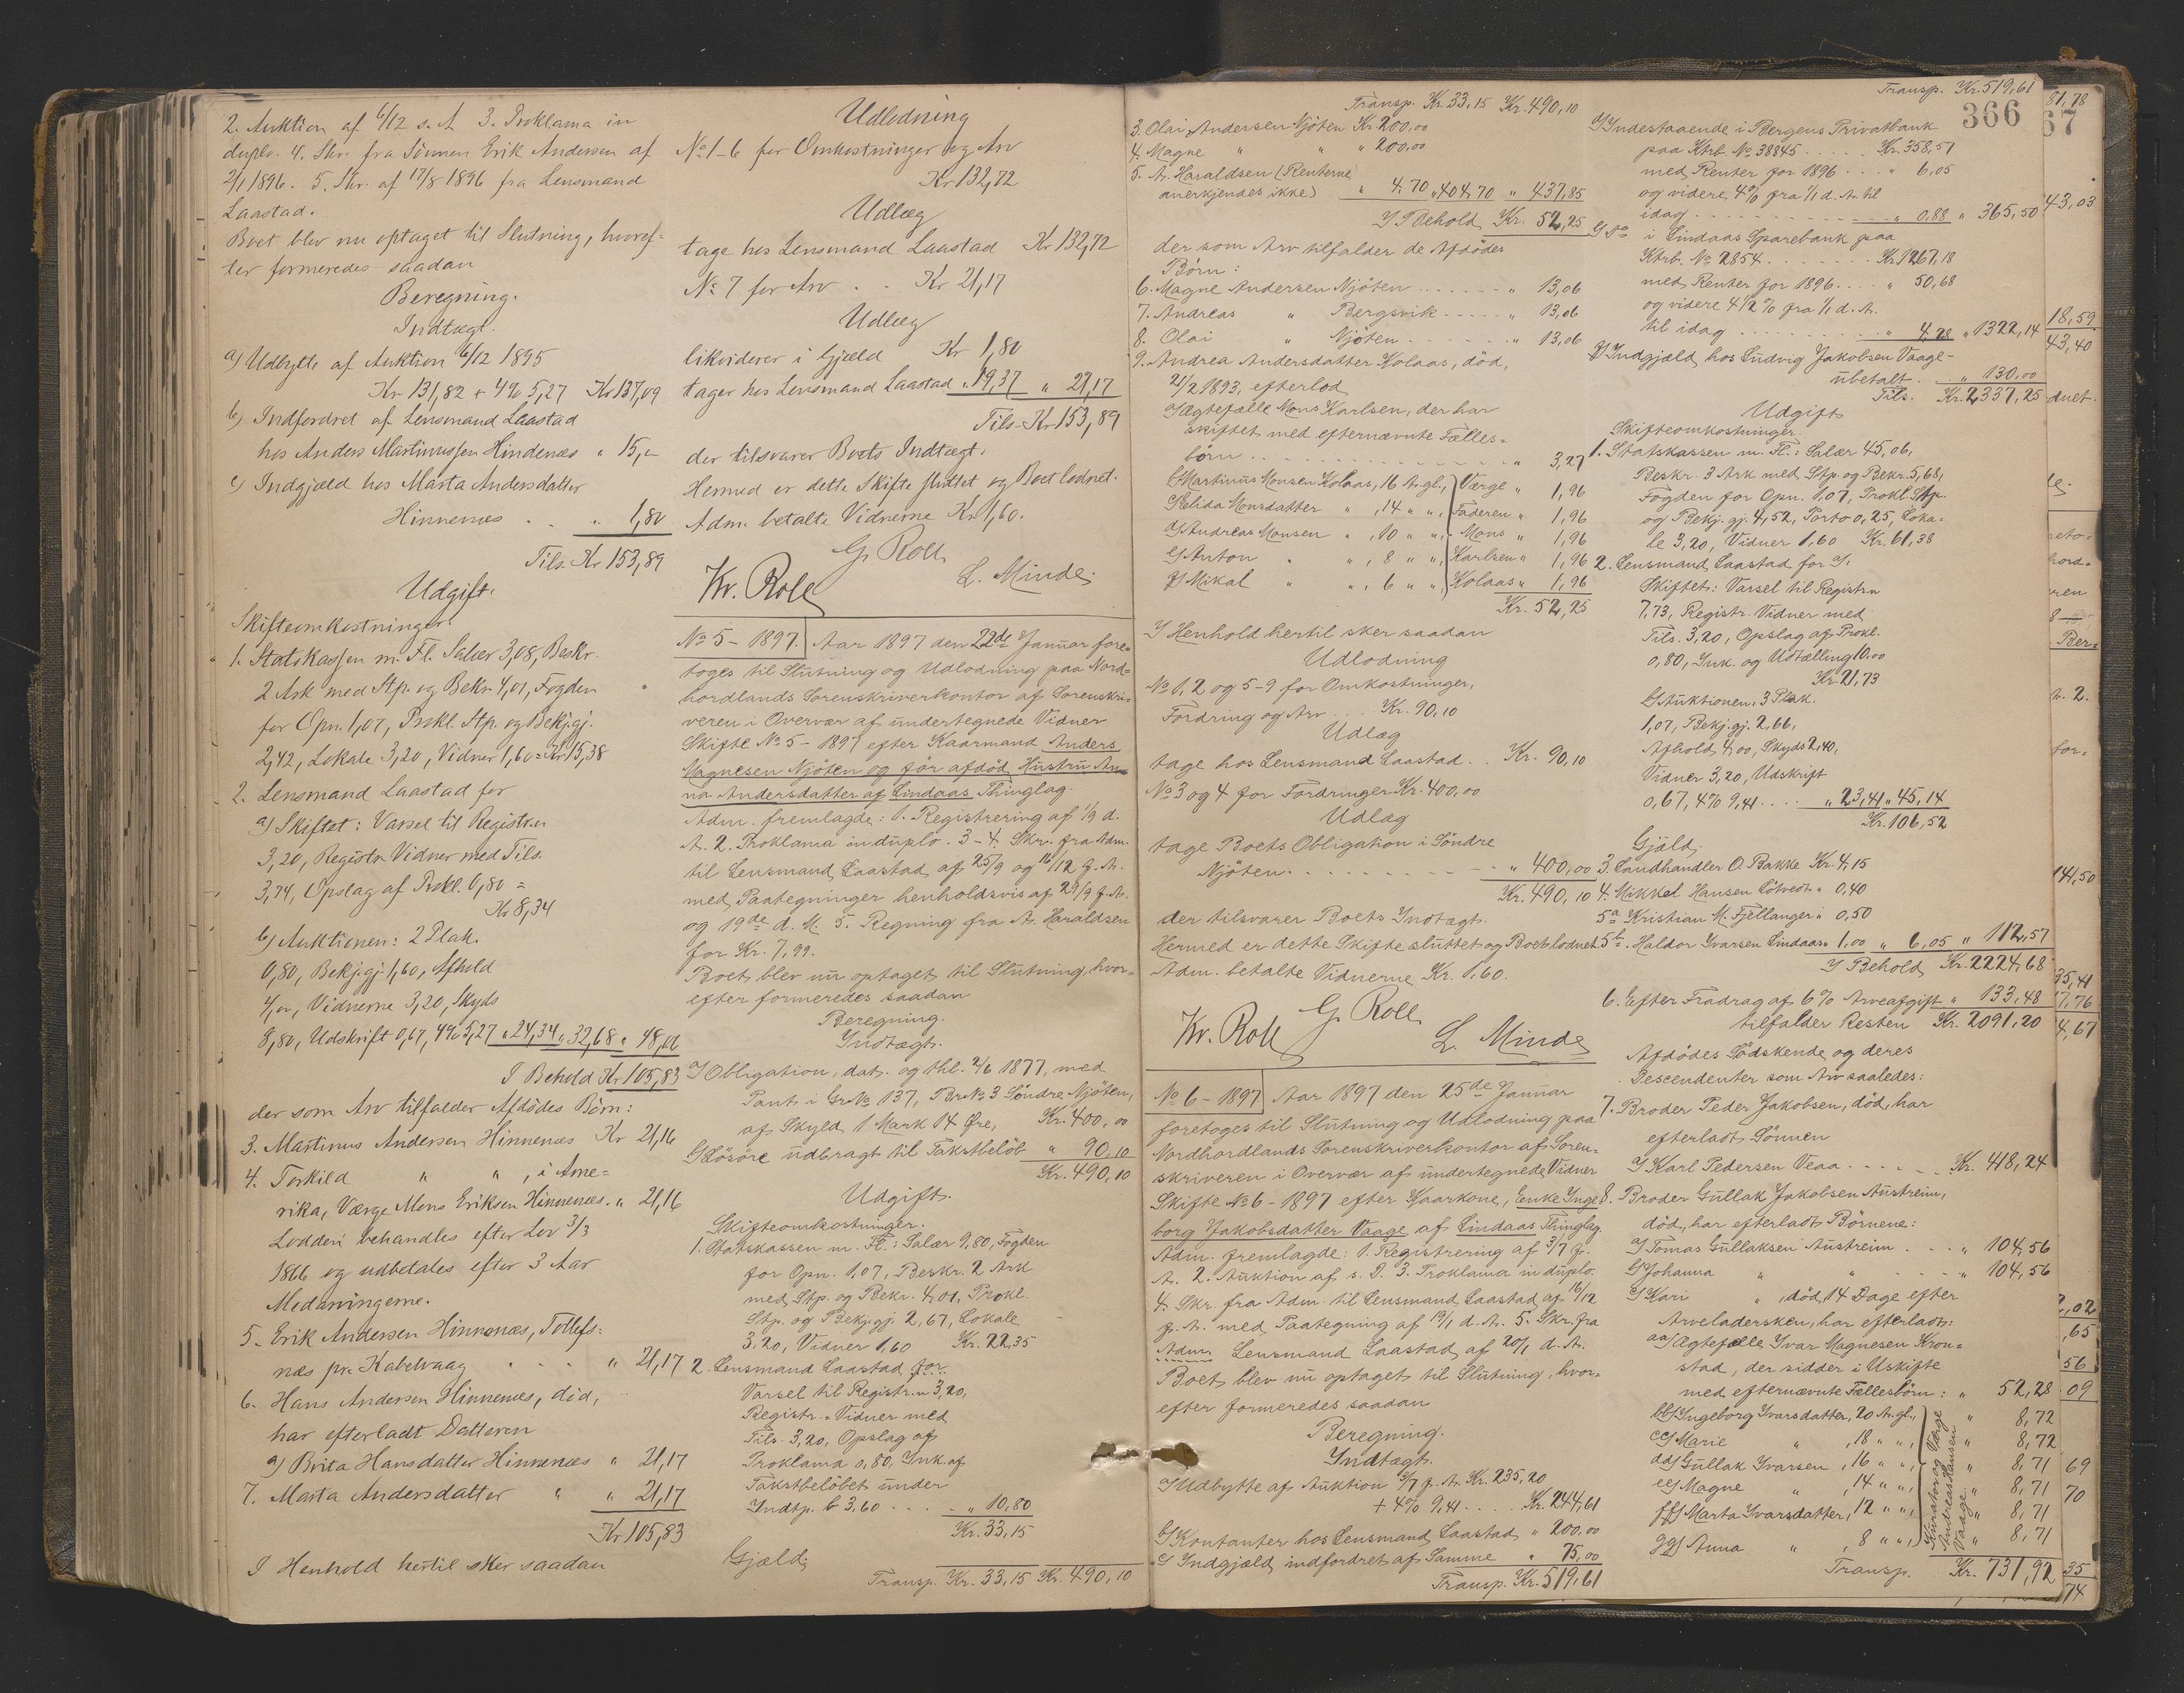 2. Auktion af 6/12 s. A 3. Proklama in
duplo. 4. Skr. fra Sönnen Erik Andersen af
2/1 1896. 5. Skr. af 17/8 1896 fra Lensmand
Laastad.
Boet blev nu optaget til Slutning, hvoref-
ter formeredes saadan
Beregning.
Indtægt.
a) Udbytte af Auktion 6/12 1895
Kr 131,82 + 4% 5,27 Kr 137,09
b) Indfordret af Lensmand Laastad
hos Anders Martinussen Hindenæs " 15,"
c) Indgjæld hos Marta Andersdatter
Hinnenæs . . " 1,80
Tils. Kr 153,89
Udgift.
Skifteomkostninger:
1. Statskassen m. Fl. Salær 3,08, Beskr.
2 Ark med Stp. og Bekr. 4,01, Fogden
for Opn. 1,07, Prokl. Stp. og Bekj.gj.
2,42, Lokale 3,20, Vidner 1,60 = Kr 15,38
2. Lensmand Laastad for
a) Skiftet: Varsel til Registr.n
3,20, Registr. Vidner med Tils.
3,74, Opslag af Prokl. 0,80 =
Kr 8,34
b) Auktionen: 2 Plak.
0,80, Bekj.gj. 1,60, Afhold
4,00, Vidnerne 3,20, Skyds
8,80, Udskrift 0,67, 4% 5,27 " 24,34 " 32,68 " 48,06
I Behold Kr 105,83
der som Arv tilfalder Afdødes Börn:
3. Martinus Andersen Hinnenæs Kr 21,16
4. Torkild " " , i Ame-
rika, Værge Mons Eriksen Hinnenæs. " 21,16
Lodden behandles efter Lov 3/3
1866 og udbetales efter 3 Aar
Medaningerne.
5. Erik Andersen Hinnenæs, Tollefs-
næs pr. Kabelvaag . . . " 21,17
6. Hans Andersen Hinnenæs, död,
har efterladt Datteren
a) Brita Hansdatter Hinnenæs " 21,17
7. Marta Andersdatter " " 21,17
Kr 105,83
I Henhold hertil sker saadan
Udlodning
No 1-6 for Omkostninger og Arv
Kr 132,72
Udlæg
tage hos Lensmand Laastad Kr 132,72
No 7 for Arv . . Kr 21,17
Udlæg
likviderer i Gjæld Kr 1,80
tager hos Lensmand Laastad " 19,37 " 21,17
Tils. Kr 153,89
der tilsvarer Boets Indtægt.
Hermed er dette Skifte sluttet og Boet lodnet.
Adm. betalte Vidnerne Kr 1,60.
G. Roll
Kr. Roll
L. Minde.
No 5 - 1897. Aar 1897 den 22de Januar fore-
toges til Slutning og Udlodning paa Nord-
hordlands Sorenskriverkontor af Sorenskri-
veren i Overvær af undertegnede Vidner
Skifte No 5 - 1897 efter Kaarmand Anders
Magnesen Njöten og för afdöd Hustru An-
na Andersdatter af Lindaas Thinglag.
Adm. fremlagde: 1. Registrering af 1/9 d.
A. 2. Proklama in duplo. 3-4. Skr. fra Adm.
til Lensmand Laastad af 25/9 og 16/12 f. A.
med Paategninger henholdsvis af 29/9 f. A.
og 19de d. M. 5. Regning fra A. Haraldsen
for Kr. 7,99.
Boet blev nu optaget til Slutning, hvor-
efter formeredes saadan
Beregning.
Indtægt.
a) Obligation, dat. og thl. 2/6 1877, med
Pant i Gr.No 137, Br.No 3 Söndre Njöten,
af Skyld 1 Mark 14 Øre, Kr. 400,00
b) Lösöre udbragt til Takstbelöb " 90,10
Kr. 490,10
Udgift.
Skifteomkostninger.
1. Statskassen m. Fl.: Salær 9,80, Fogden
for Opn. 1,07, Beskr. 2 Ark
med Stp. og Bekr. 4,01, Prokl.
Stp. og Bekj.gj. 2,67, Lokale
3,20, Vidner 1,60 Kr. 22,35
2. Lensmand Laastad for
Varsel til Registr.n 3,20,
Registr. Vidner med
Tils. 3,20, Opslag af
Proklama 0,80, Ink. af
Takstbelöbet under
Indtp. b 3,60 . . . . " 10,80
Kr. 33,15
Gjæld.
Transp. Kr. 33,15 Kr. 490,10
Transp. Kr. 33,15 Kr. 490,10
3. Olai Andersen Njöten Kr 200,00
4. Magne " " " 200,00
5. A. Haraldsen (Renterne
anerkjendes ikke) " 4,70 " 404,70 " 437,85
I Behold Kr. 52,25
der som Arv tilfalder de Afdödes
Börn:
6. Magne Andersen Njöten . . . . . . " 13,06
7. Andreas " Bergsvik . . . . . " 13,06
8. Olai " Njöten . . . . . . " 13,06
9. Andrea Andersdatter Kolaas, död,
21/2 1893, efterlod
a) Ægtefælle Mons Karlsen, der har
skiftet med efternævnte Fælles-
börn . . . . . . . . . . . . . . " 3,27
b) Martinus Monsen Kolaas, 16 A. gl., Værge " 1,96
c) Selida Monsdatter " , 14 " ", Faderen " 1,96
d) Andreas Monsen " , 10 " ", Mons " 1,96
e) Anton " " , 8 " ", Karlsen " 1,96
f) Mikal " " , 6 " ", Kolaas " 1,96
Kr. 52,25
I Henhold hertil sker saadan
Udlodning
No 1, 2 og 5-9 for Omkostninger,
Fordring og Arv . . . Kr. 90,10
Udlæg
tage hos Lensmand Laastad . . Kr. 90,10
No 3 og 4 for Fordringer Kr. 400,00
Udlæg
tage Boets Obligation i Söndre
Njöten . . . . . . . . . . " 400,00
Kr. 490,10
der tilsvarer Boets Indtægt.
Hermed er dette Skifte sluttet og Boet lodnet.
Adm. betalte Vidnerne Kr. 1,60.
G. Roll
Kr. Roll
L. Minde
No 6 - 1897 Aar 1897 den 25de Januar
foretoges til Slutning og Udlodning paa
Nordhordlands Sorenskriverkontor af Soren-
skriveren i Overvær af undertegnede Vidner
Skifte No 6 - 1897 efter Kaarkone, Enke Inge-
borg Jakobsdatter Vaage af Lindaas Thinglag
Adm. fremlagde: 1. Registrering af 3/7 f.
A. 2. Auktion af s. D. 3. Proklama in duplo.
4. Skr. fra Adm. til Lensmand Laastad af 16/12
f. A. med Paategning af 19/1 d. A. 5. Skr. fra
Adm. Lensmand Laastad af 20/1 d. A.
Boet blev nu optaget til Slutning, hvor-
efter formeredes saadan
Beregning.
Indtægt.
a) Udbytte af Auktion 3/7 f. A. Kr. 235,20
+ 4% 9,41 . . . Kr. 244,61
b) Kontanter hos Lensmand Laastad " 200,00
c) Indgjæld indfordret af Samme " 75,00
Transp. Kr. 519,61
Transp. Kr. 519,61
366
d) Indestaaende i Bergens Privatbank
paa Ktrb. No 38845 . . . . . Kr. 358,57
med Renter for 1896 . . . " 6,05
og videre 4% fra 1/1 d. A. til
idag . . . . . . . . . . . . " 0,88 " 365,50
e) Do i Lindaas Sparebank paa
Ktrb. No 2854 . . . . . . . Kr. 1267,18
med Renter for 1896 . . . . " 50,68
og videre 4 1/2 % fra 1/1 d. A.
til idag . . . . . . . . . . " 4,28 " 1322,14
f) Indgjæld hos Ludvig Jakobsen Vaage -
ubetalt . . . " 130,00
Tils. Kr. 2337,25
Udgift
Skifteomkostninger.
1. Statskassen m. Fl.: Salær 45,06,
Beskr. 3 Ark med Stp. og Bekr. 5,68,
Fogden for Opn. 1,07, Prokl. Stp.
og Bekj.gj. 4,52, Porto 0,25, Loka-
le 3,20, Vidner 1,60 Kr. 61,38
2. Lensmand Laastad for a)
Skiftet: Varsel til Registr.n
7,73, Registr. Vidner med
Tils. 3,20, Opslag af Prokl.
0,80, Ink. og Udtælling 10.00
Kr. 21,73
b) Auktionen, 3 Plak.
1,07, Bekj.gj. 2,66,
Afhold 4,00, Skyds 2,40,
Vidner 3,20, Udskrift
0,67, 4% 9,41 . . . . " 23,41 " 45,14
Kr. 106,52
Gjæld.
3. Landhandler O. Bakke Kr. 4,15
4. Mikkel Hansen Lötvedt " 0,40
5a Kristian M. Fjellanger " 0,50
5b. Haldor Ivarsen Lindaas " 1,00 " 6,05 " 112,57
I Behold Kr. 2224,68
6. Efter Fradrag af 6% Arveafgift " 133,48
tilfalder Resten Kr. 2091,20
Afdödes Södskende og deres
Descendenter som Arv saaledes:
7. Broder Peder Jakobsen, död, har
efterladt Sönnen
a) Karl Pedersen Veaa . . . . . . Kr. 418,24
8. Broder Gullak Jakobsen Austreim,
död, har efterladt Börnene:
a) Tomas Gullaksen Austreim . . . " 104,56
b) Johanna " " . . . . " 104,56
c) Kari " , död 14 Dage efter
Arveladersken, har efterladt:
aa) Ægtefælle Ivar Magnesen Kron-
stad, der sidder i Uskifte
med efternævnte Fællesbörn: " 52,28
bb) Ingeborg Ivarsdatter, 20 A. gl., " 8,72
cc) Marie " , 18 " ", " 8,72
dd) Gullak Ivarsen , 16 " ", " 8,71
ee) Magne " , 14 " ", " 8,71
ff) Marta Ivarsdatter, 12 " ", " 8,71
gg) Anna " , 8 " ", " 8,71
Kurator og Værge
Andreas Hansen
Vaage
Transp. Kr. 731,92
81,78
67
43,03
18,59
43,40
duet.
Ber-
A. 2.
for-
141,50
35,41
7,76
4,67
2,02
,65
56
09
69
70
35
74